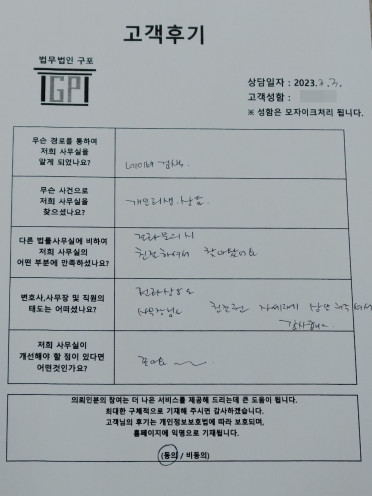 고객후기
법무법인 구포
GP
상담일자 : 2023. 2. 3.
고객성함 :
※ 성함은 모자이크처리 됩니다.
무슨 경로를 통하여
저희 사무실을
알게 되었나요?
네이버 검색.
무슨 사건으로
저희 사무실을
찾으셨나요?
개인회생. 상담.
다른 법률사무실에 비하여
저희 사무실의
어떤 부분에 만족하셨나요?
전화문의시
친절하셔서 찾아왔어요
변호사,사무장 및 직원의
태도는 어떠셨나요?
전화상담도
사무장님도 친절한 자세하게 상담 해주셔서
감사해요
저희 사무실이
개선해야 할 점이 있다면
어떤것인가요?
좋아요
의뢰인분의 참여는 더 나은 서비스를 제공해 드리는데 큰 도움이 됩니다.
최대한 구체적으로 기재해 주시면 감사하겠습니다.
고객님의 후기는 개인정보보호법에 따라 보호되며,
홈페이지에 익명으로 기재됩니다.
(동의 / 비동의)